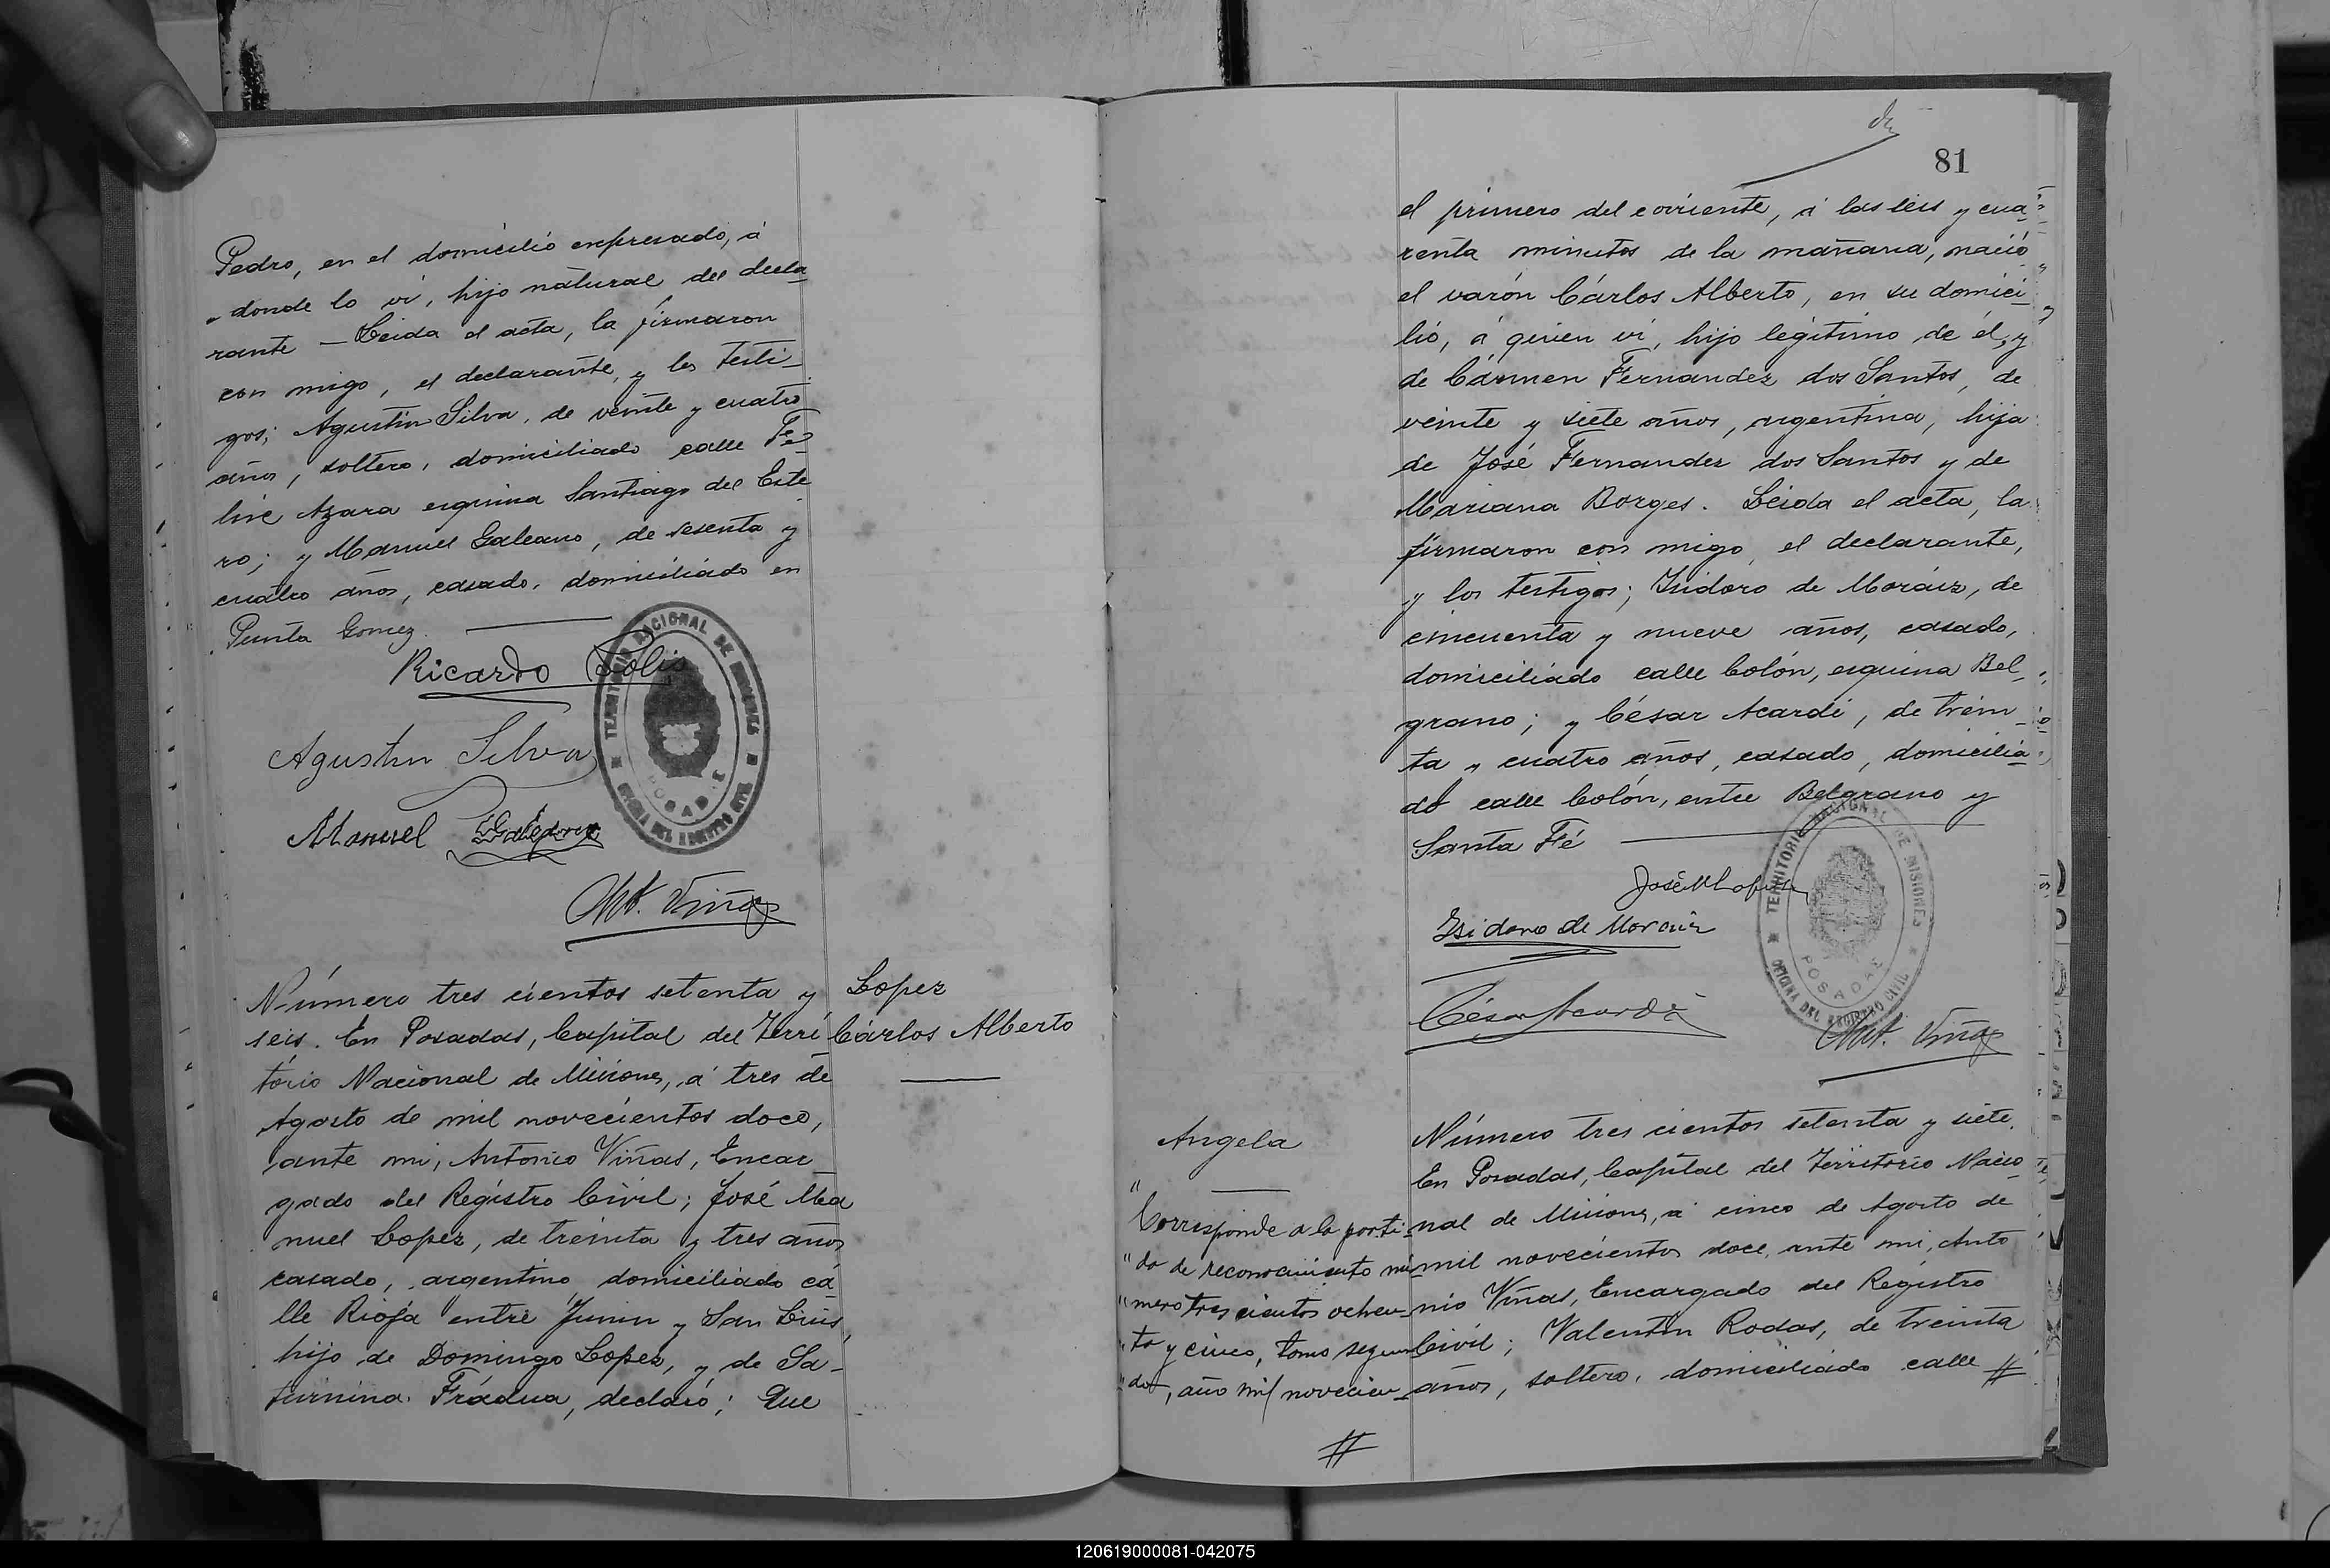 Pedro, en el domicilio expresado, á
donde lo ví, hijo natural del decla-
rante — Leida el acta, la firmaron
con migo, el declarante, y los testi-
gos; Agustin Silva, de veinte y cuatro
años, soltero, domiciliado calle Fé-
lix Azara esquina Santiago del Este-
ro; y Manuel Galeano, de sesenta y
cuatro años, casado, domiciliado en
Punta Gomez.
Ricardo Solis
Agustin Silva
Manuel Galeano
Ant. Viñas
TERRITORIO NACIONAL DE MISIONES
OFICINA DEL REGISTRO CIVIL
POSADAS
Número tres cientos setenta y
seis. En Posadas, Capital del Terri-
tório Nacional de Misiones, á tres de
Agosto de mil novecientos doce,
ante mi, Antonio Viñas, Encar-
gado del Registro Civil; José Ma-
nuel Lopez, de treinta y tres años
casado, argentino domiciliado cá-
lle Rioja entre Junin y San Luis,
hijo de Domingo Lopez, y de Sa-
turnina Frádua, declaró; Que
Lopez
Cárlos Alberto
81
el primero del corriente, á las seis y cua-
renta minutos de la mañana, nació
el varón Cárlos Alberto, en su domici-
lio, á quien ví, hijo legítimo de él, y
de Cármen Fernandez dos Santos, de
veinte y siete años, argentina, hija
de José Fernandez dos Santos y de
Mariana Borges. Leida el acta, la
firmaron con migo, el declarante,
y los testigos; Isidoro de Moráiz, de
cincuenta y nueve años, casado,
domiciliado calle Colón, esquina Bel-
grano; y César Acardi, de trein-
ta y cuatro años, casado, domicilia-
do calle Colón, entre Belgrano y
Santa Fé
José M Lopez
Isidoro de Moraiz
César Acardi
Ant. Viñas
TERRITORIO NACIONAL DE MISIONES
OFICINA DEL REGISTRO CIVIL
POSADAS
Angela
"Corresponde a la parti-
"da de reconocimiento nú-
"mero tres cientos ochen-
"ta y cinco, tomo segun-
"do, año mil novecien-
#
Número tres cientos setenta y siete.
En Posadas, Capital del Territorio Nacio-
nal de Misiones, á cinco de Agosto de
mil novecientos doce, ante mi, Anto-
nio Viñas, Encargado del Registro
Civil; Valentin Rodas, de treinta
años, soltero, domiciliado calle #
120619000081-042075